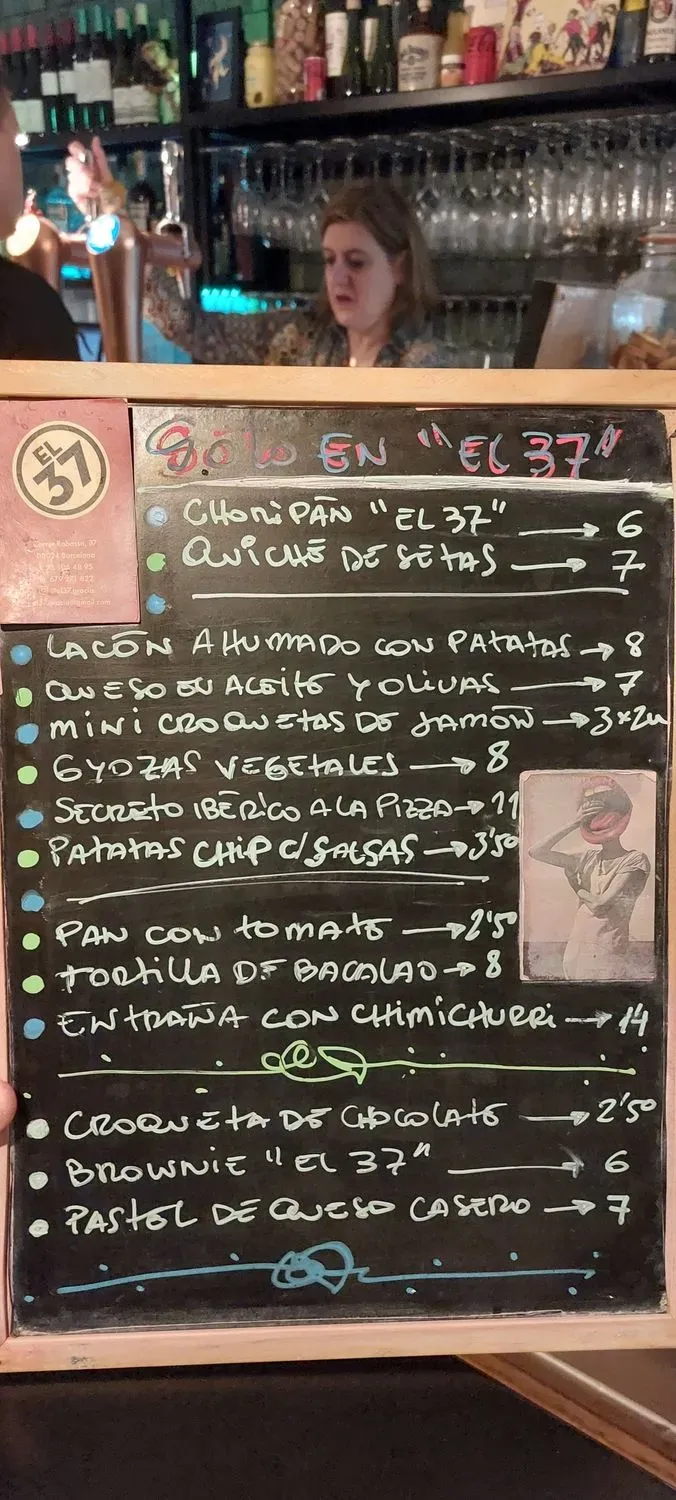 EL
37
08024 Barcelona
SÓLO EN "EL 37"
CHORIPÁN "EL 37" → 6
QUICHÉ DE SETAS → 7
LACÓN AHUMADO CON PATATAS → 8
QUESO EN ACEITE Y OLIVAS → 7
MINI CROQUETAS DE JAMÓN → 3 x 2u
GYOZAS VEGETALES → 8
SECRETO IBÉRICO A LA PIZZA → 11
PATATAS CHIP C/SALSAS → 3'50
PAN CON TOMATE → 2'50
TORTILLA DE BACALAO → 8
ENTRAÑA CON CHIMICHURRI → 14
CROQUETA DE CHOCOLATE → 2'50
BROWNIE "EL 37" → 6
PASTEL DE QUESO CASERO → 7